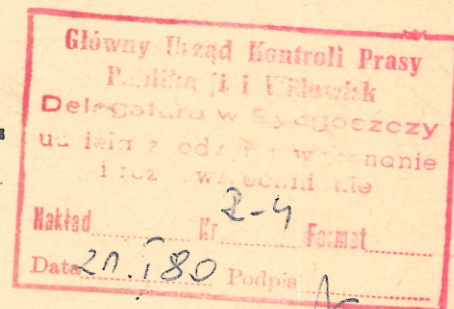 Główny Urząd Kontroli Prasy
Publikacji i Widowisk
Delegatura w Bydgoszczy
udziela zgody na wykonanie
i rozpowszechnianie
Nakład Nr R-4 Format
Data 21.I 80 Podpis